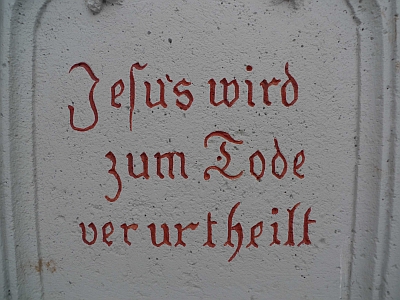 Jeſus wird
zum Tode
verurtheilt